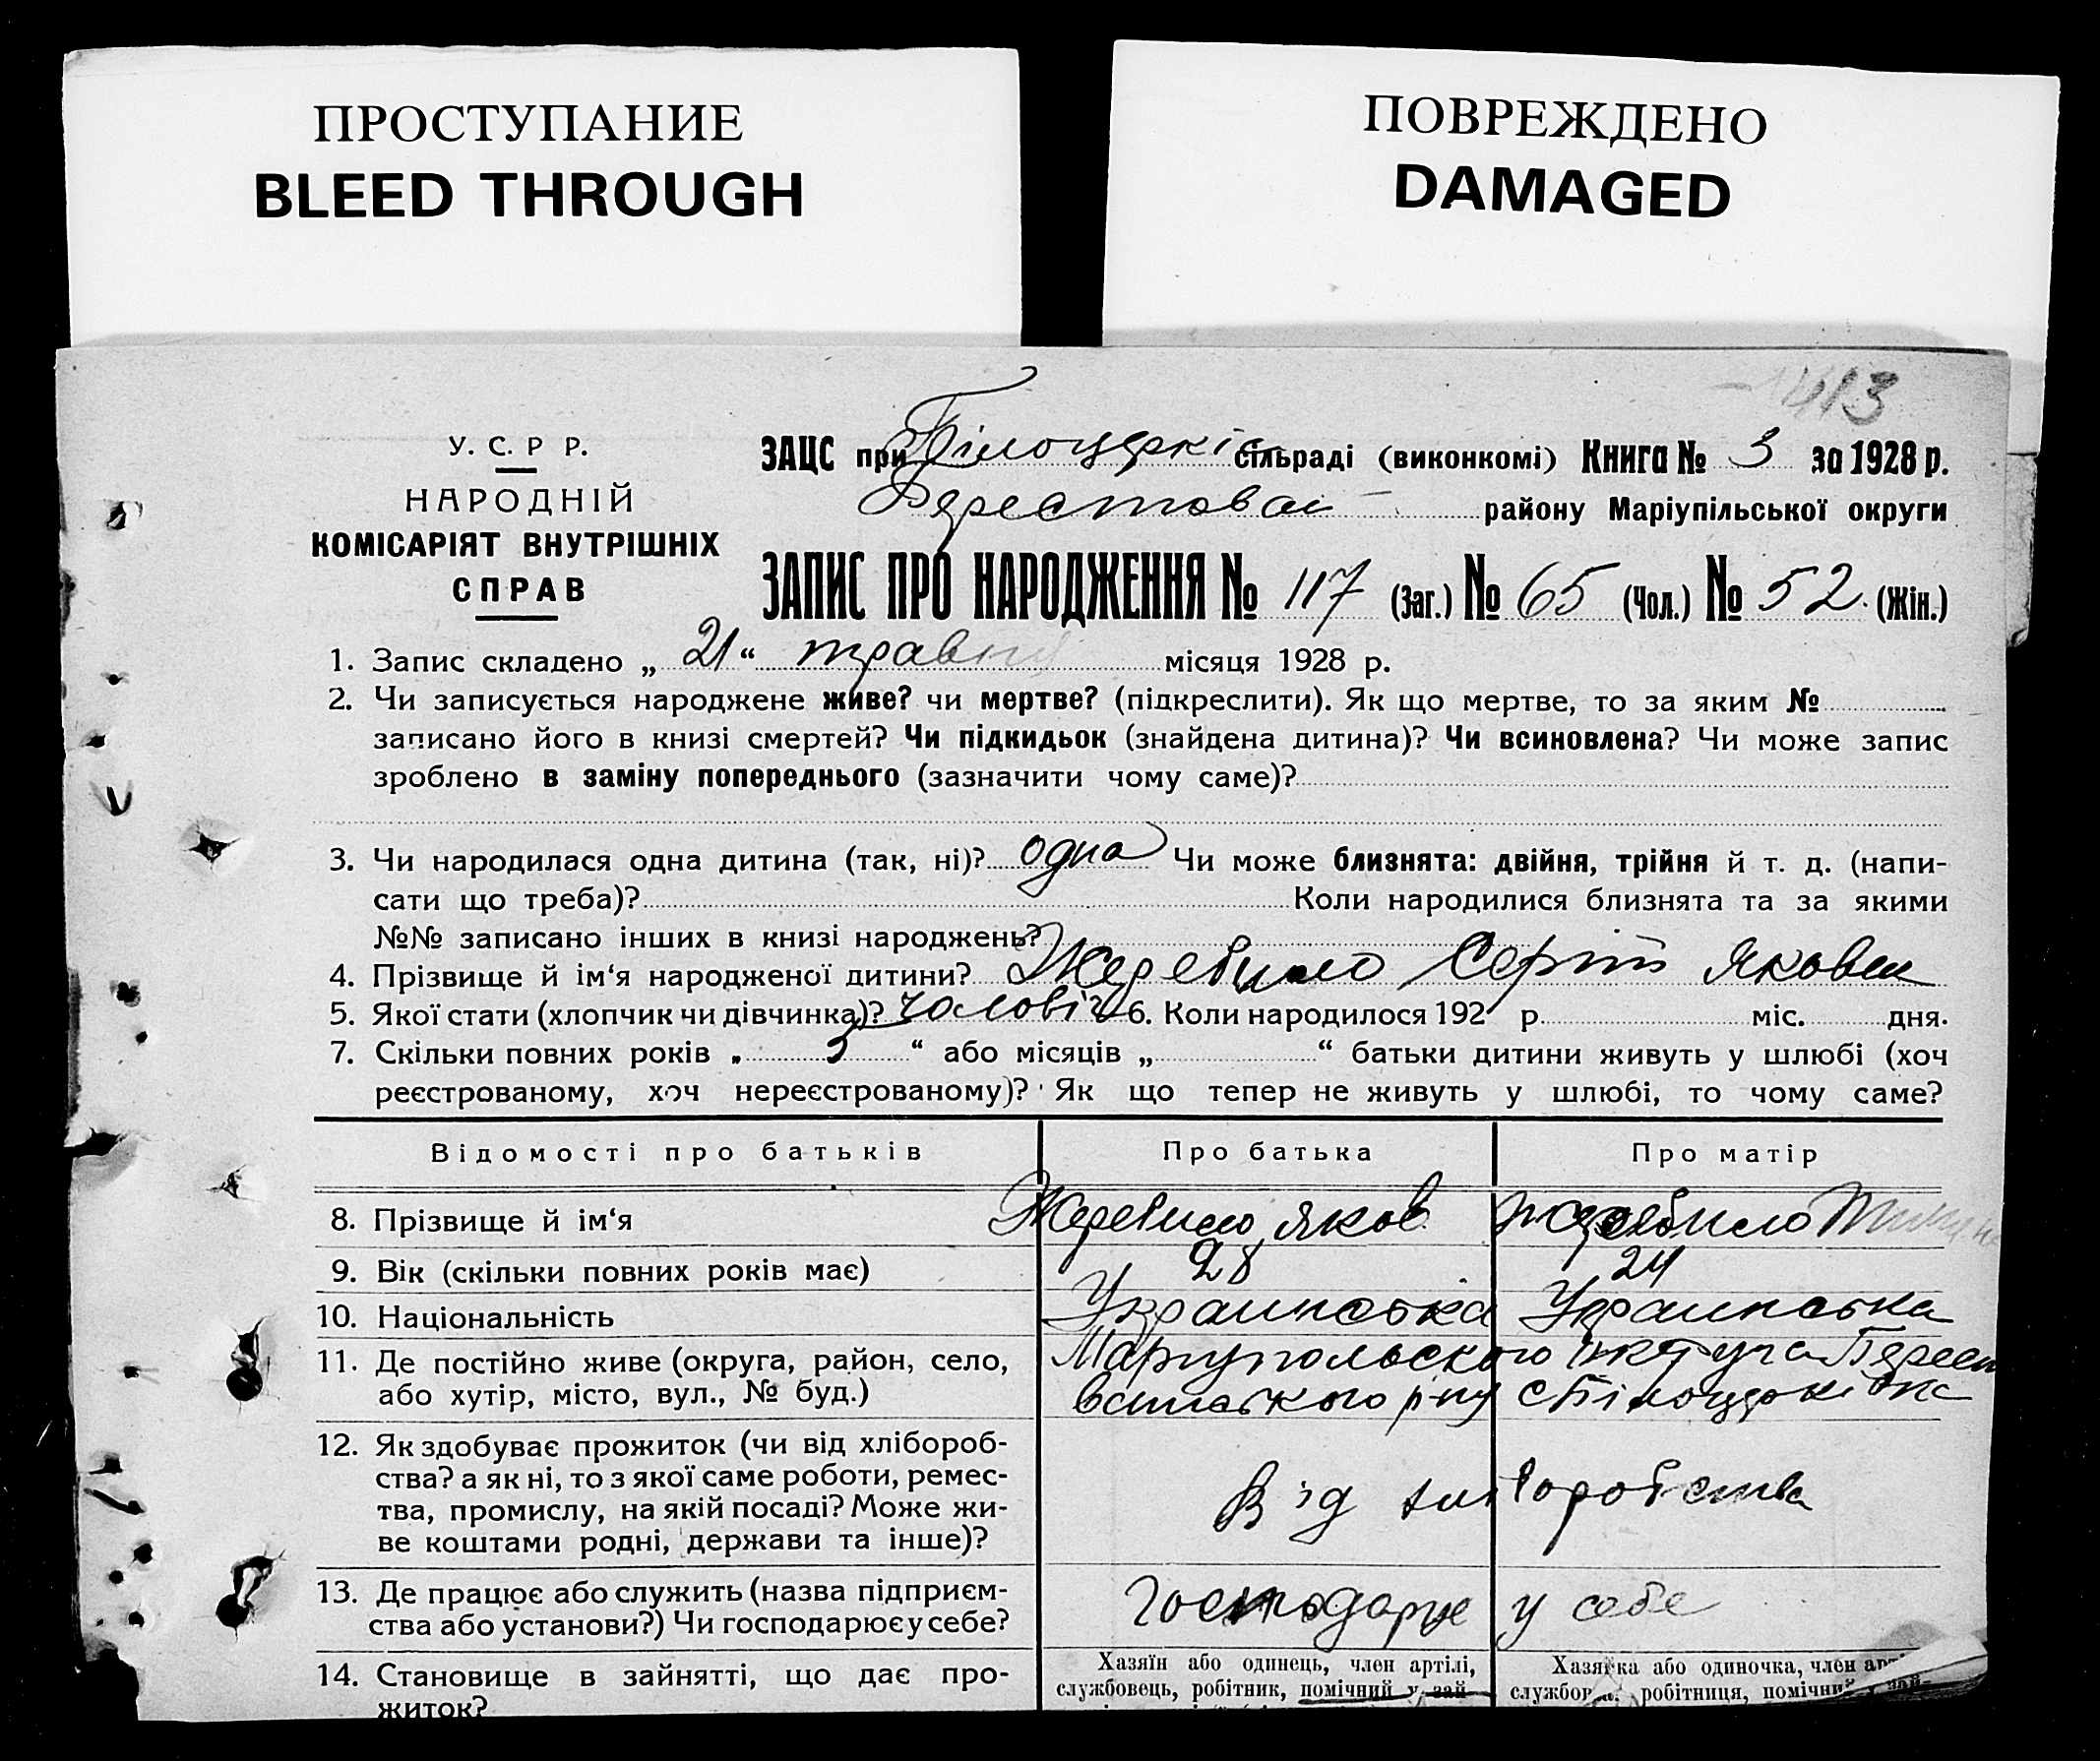 ПРОСТУПАНИЕ
BLEED THROUGH
ПОВРЕЖДЕНО
DAMAGED
413
У. С. Р Р.
НАРОДНІЙ
КОМІСАРІЯТ ВНУТРІШНІХ
СПРАВ
ЗАЦС при Білоцерків сільраді (виконкомі) Книга № 3 за 1928 р.
Берестова району Маріупільської округи
ЗАПИС ПРО НАРОДЖЕННЯ № 117 (Заг.) № 65 (Чол.) № 52 (Жін.)
1. Запис складено „ 21 “ травня місяця 1928 р.
2. Чи записується народжене живе? чи мертве? (підкреслити). Як що мертве, то за яким №
записано його в книзі смертей? Чи підкидьок (знайдена дитина)? Чи всиновлена? Чи може запис
зроблено в заміну попереднього (зазначити чому саме)?
3. Чи народилася одна дитина (так, ні)? одна Чи може близнята: двійня, трійня й т. д. (напи-
сати що треба)? Коли народилися близнята та за якими
№№ записано інших в книзі народжень?
4. Прізвище й ім‘я народженої дитини? Жеребило Сергій Яковл
5. Якої стати (хлопчик чи дівчинка)? чоловіч 6. Коли народилося 192 р. міс. дня.
7. Скільки повних років „ 3 “ або місяців „ “ батьки дитини живуть у шлюбі (хоч
реєстрованому, хоч нереєстрованому)? Як що тепер не живуть у шлюбі, то чому саме?
Відомості про батьків Про батька Про матір
8. Прізвище й ім‘я Жеребило Яков Жеребило
9. Вік (скільки повних років має) 28 24
10. Національність Украинська Украинська
11. Де постійно живе (округа, район, село, Мариупольского округа Берест
або хутір, місто, вул., № буд.) ватського р-ну с Білоцерківка
12. Як здобуває прожиток (чи від хлібороб-
ства? а як ні, то з якої саме роботи, ремес-
тва, промислу, на якій посаді? Може жи-
ве коштами родні, держави та інше)?
Від хліборобства
13. Де працює або служить (назва підприєм-
ства або установи?) Чи господарює у себе?
господарює у себе
14. Становище в зайнятті, що дає про-
житок?
Хазяїн або одинець, член артілі,
службовець, робітник, помічний у зай-
Хазяйка або одиночка, член арті
службов робітниця, помічни у зай-